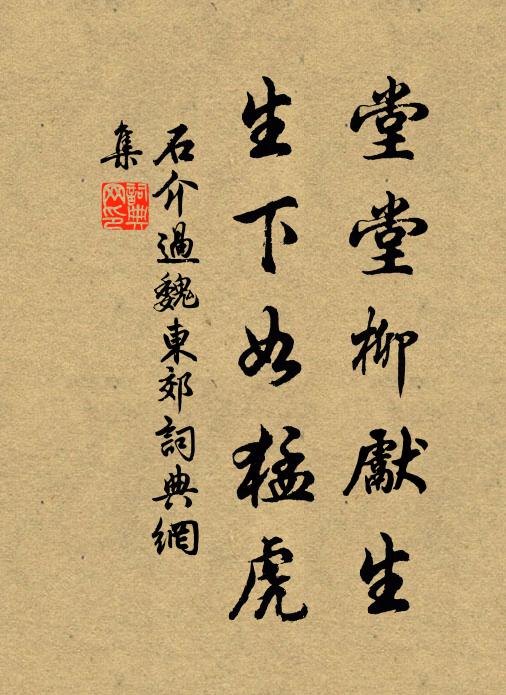 堂堂柳獻生
生下如猛虎
石介過魏東郊詞典網
集
詞典
网印